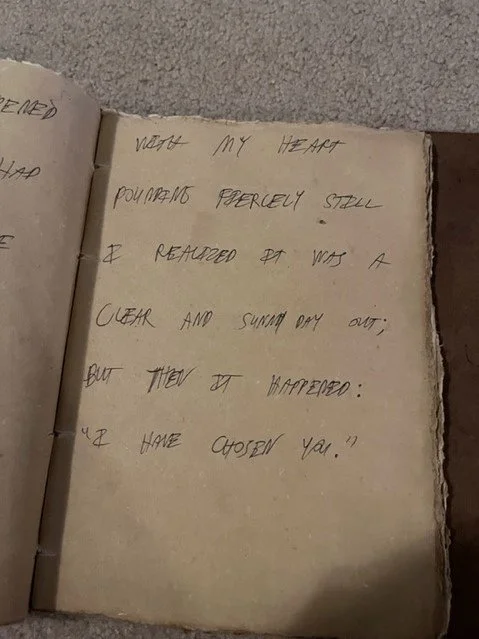 ENED
HAD
E
WITH MY HEART
POUNDING FIERCELY STILL
I REALIZED IT WAS A
CLEAR AND SUNNY DAY OUT;
BUT THEN IT HAPPENED:
"I HAVE CHOSEN YOU."